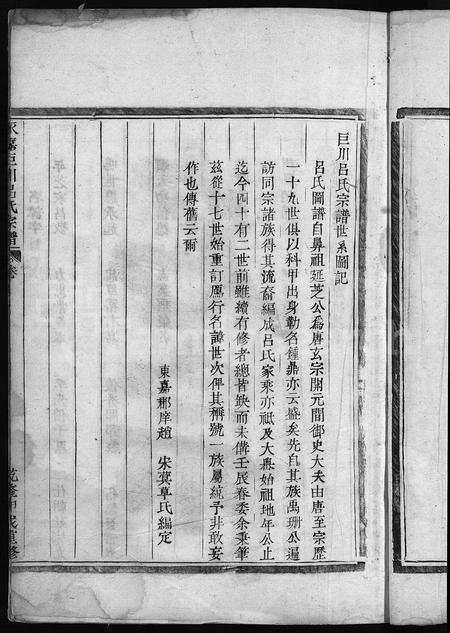 巨川呂氏宗譜世系圖記
呂氏圖譜自鼻祖延芝公為唐玄宗開元間御史大夫由唐至宗歷
一十九世俱以科甲出身勒名鍾鼎亦云盛矣先自其族禹珊公遍
訪同宗諸族得其流裔編成呂氏家乘亦祗及大鼎始祖地年公止
迄今四十有二世前雖續有修者總皆缺而未備壬辰春委余秉筆
茲從十七世始重訂鴈行名諱世次俾其 號一族屬統予非敢妄
作也傳舊云爾
東嘉郡庠趙 宋 草氏編定
嘉巨川呂氏宗譜 卷
乾隆 重修